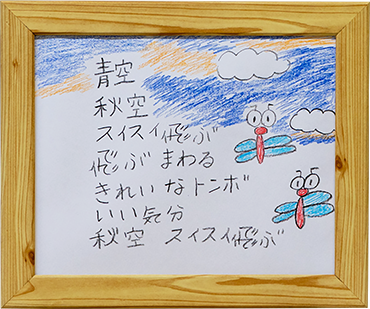 青空
秋空
スイスイ飛ぶ
飛ぶまわる
きれいなトンボ
いい気分
秋空 スイスイ飛ぶ